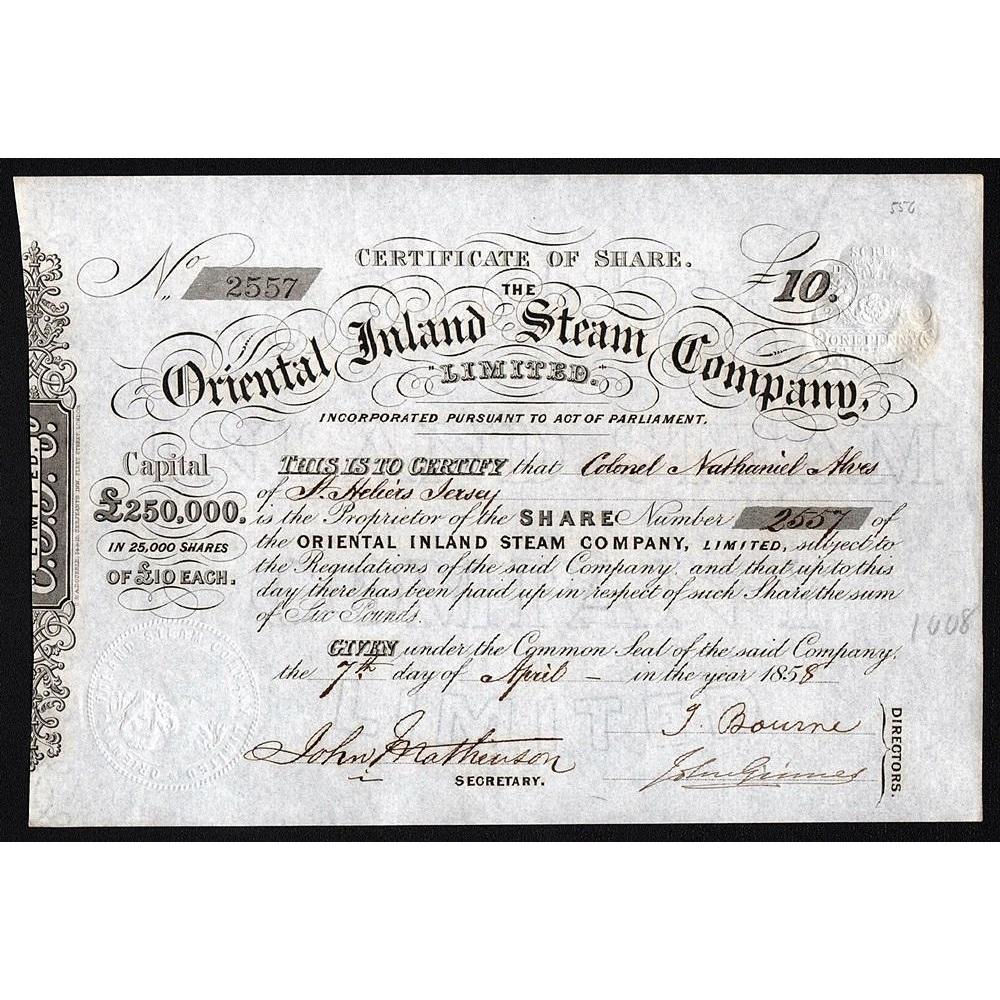 556
CERTIFICATE OF SHARE.
No 2557
£10.
ONE PENNY
THE
Oriental Inland Steam Company,
"LIMITED."
INCORPORATED PURSUANT TO ACT OF PARLIAMENT.
Capital
£250.000.
IN 25,000 SHARES
OF £10 EACH.
LIMITED.
THIS IS TO CERTIFY that Colonel Nathaniel Alves
of St. Heliers Jersey
is the Proprietor of the SHARE Number 2557 of
the ORIENTAL INLAND STEAM COMPANY, LIMITED, subject to
the Regulations of the said Company, and that up to this
day there has been paid up in respect of such Share the sum
of Six Pounds.
1008
GIVEN under the Common Seal of the said Company,
the 7th day of April – in the year 1858
John Mathieson
SECRETARY.
J. Bourne
DIRECTORS.